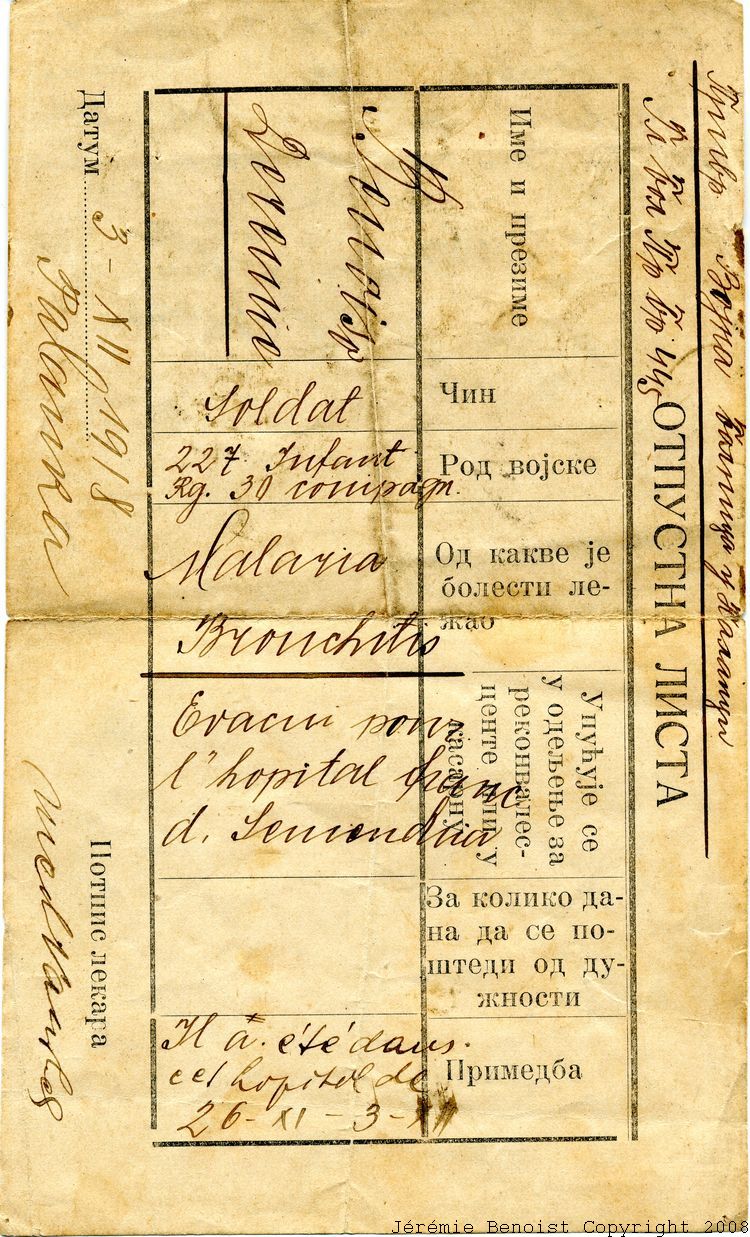 Привр. Војна болница у Паланци
Гл бол Пр бр 445
ОТПУСТНА ЛИСТА
Име и презиме
Чин
Soldat
Род војске
227 Infant
Rg. 30 compagn.
Од какве је
болести ле-
жао
Malaria
Bronchitis
Упућује се
у одељење за
реконвалес-
центе или у
касарну
Evacui pour
l'hopital franc
d. Semendria
За колико да-
на да се по-
штеди од ду-
жности
Примедба
Il a été dans
cet hopitol de
26-XI-3-XII
Датум 3-XII 1918
Palanka
Потпис лекара
Jérémie Benoist Copyright 2008